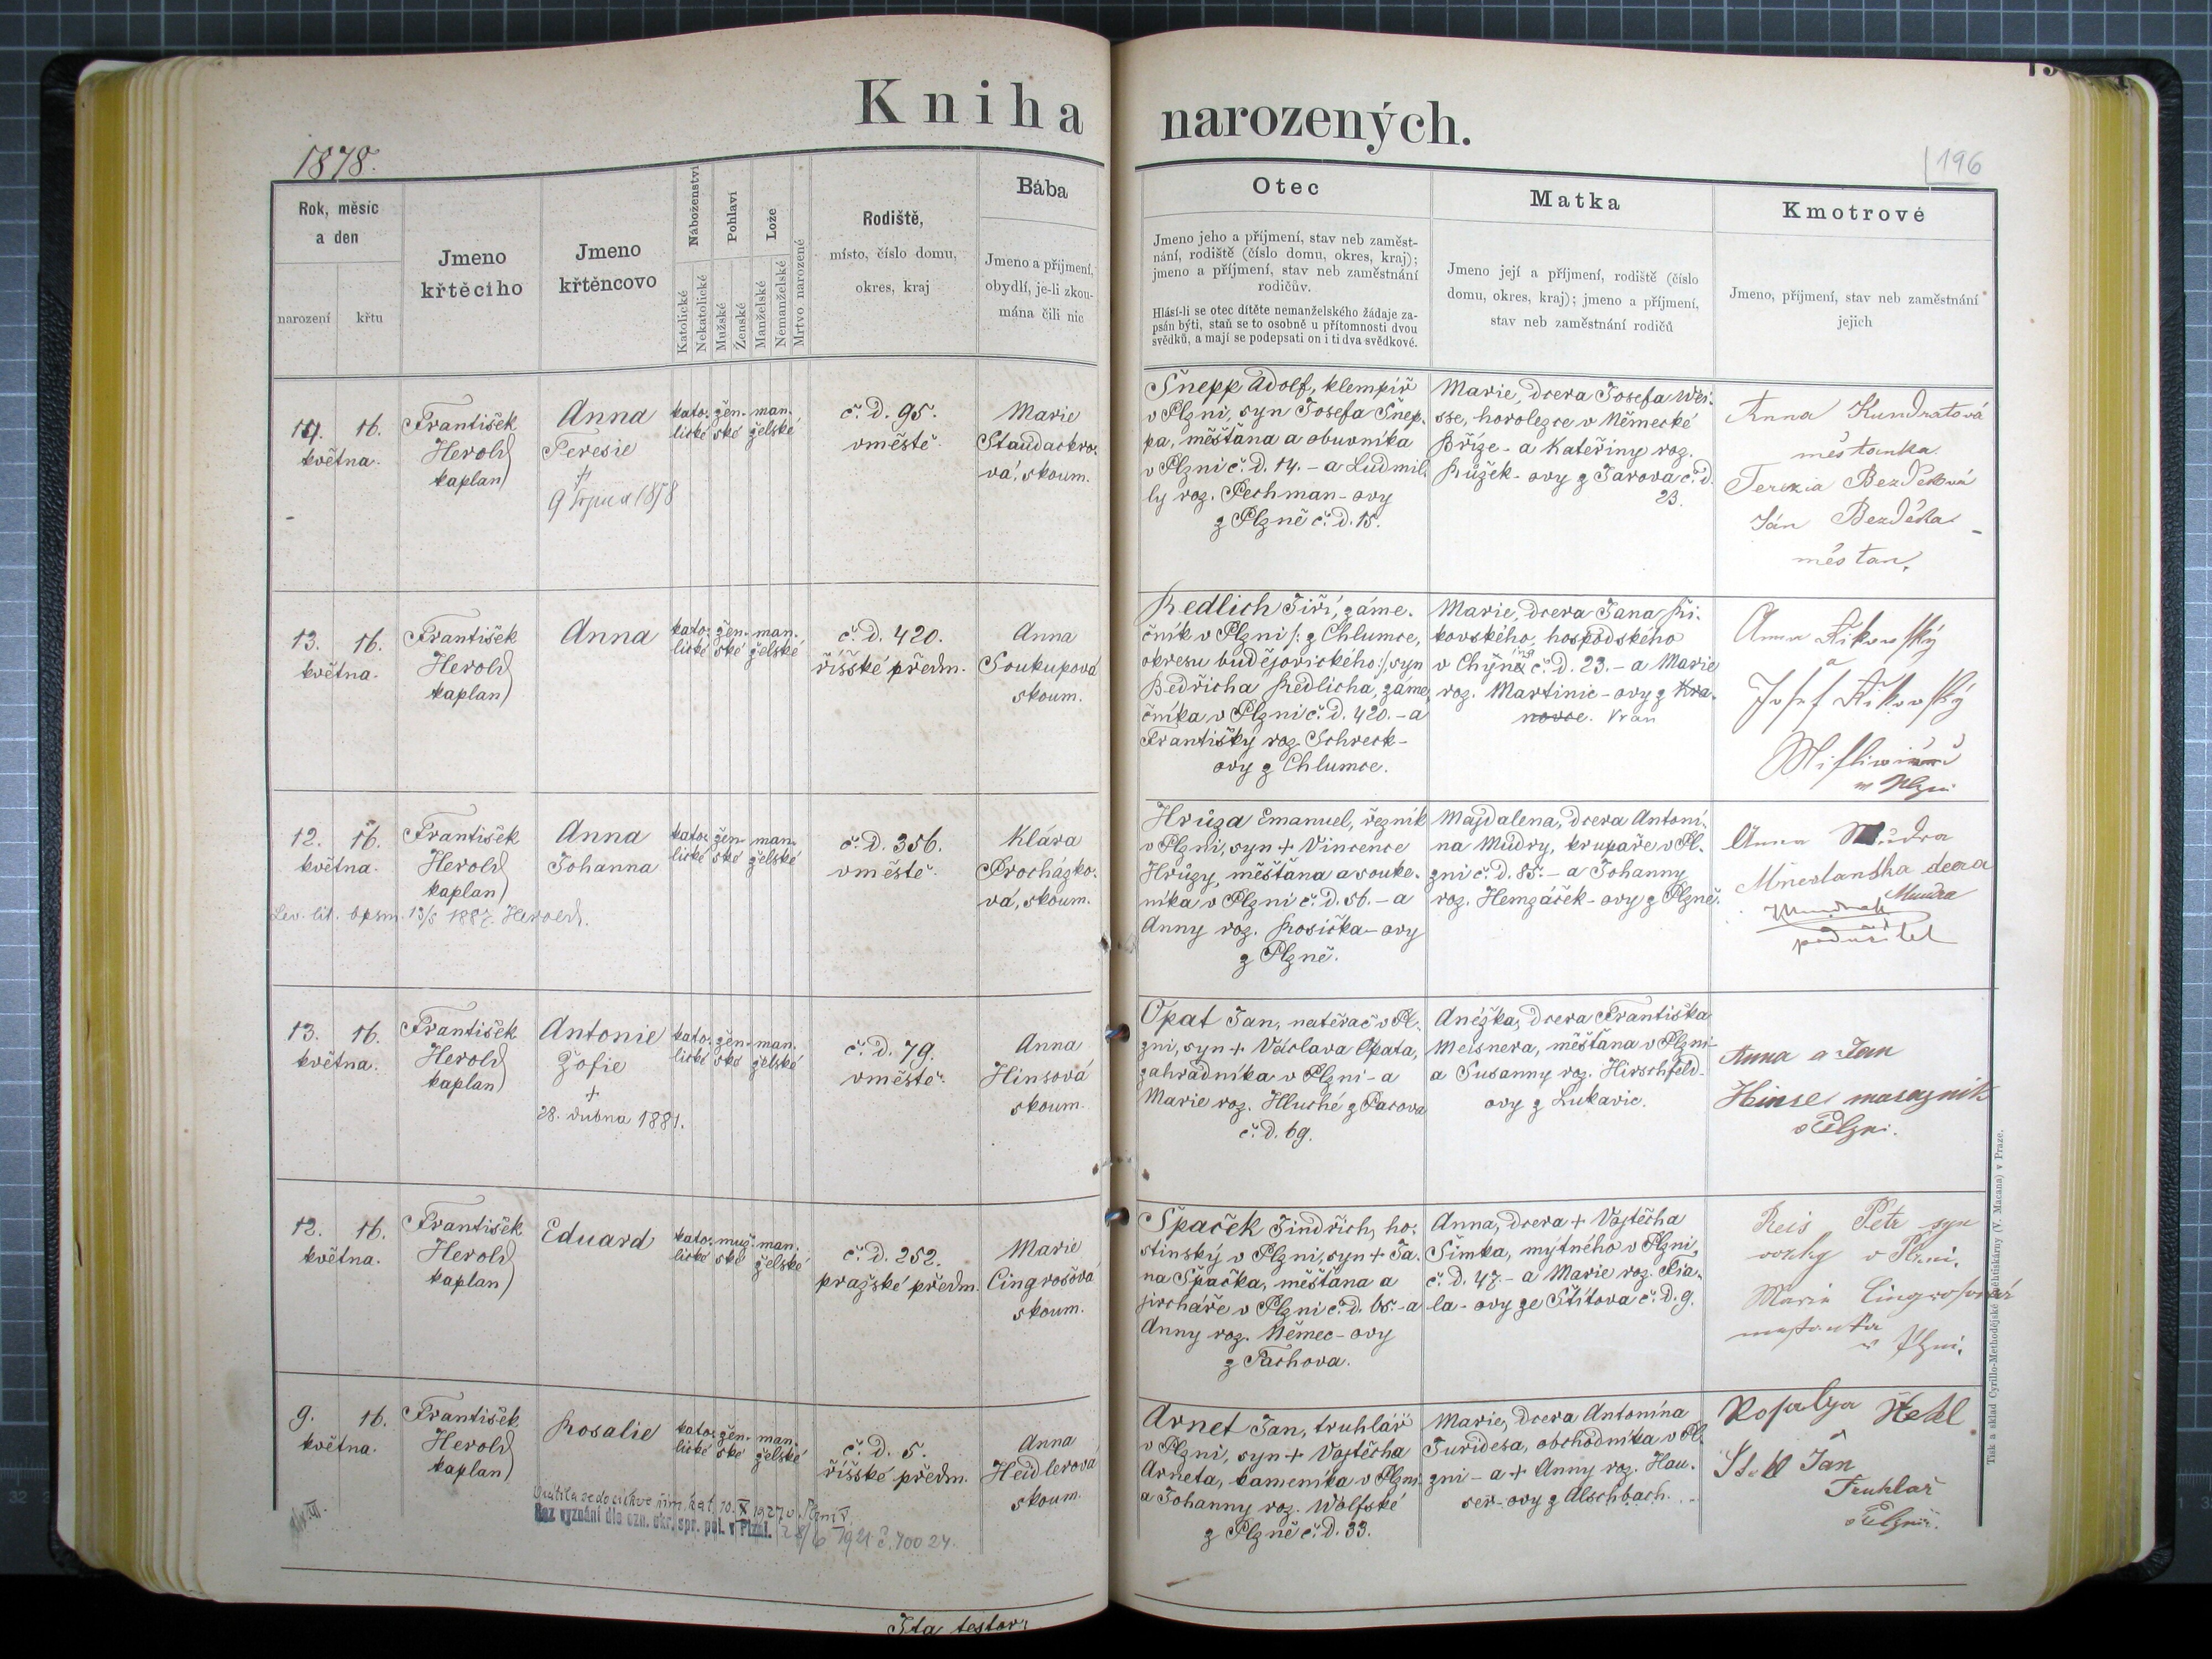 Kniha narozených.
1878.
196
Rok, měsíc
a den
narození
křtu
Jmeno
křtěcího
Jmeno
křtěncovo
Náboženství
Katolické
Nekatolické
Pohlaví
Mužské
Ženské
Lože
Manželské
Nemanželské
Mrtvo narozené
Rodiště,
místo, číslo domu,
okres, kraj
Bába
Jmeno a příjmení,
obydlí, je-li zkou-
mána čili nic
Otec
Jmeno jeho a příjmení, stav neb zaměst-
nání, rodiště (číslo domu, okres, kraj);
jmeno a příjmení, stav neb zaměstnání
rodičův.
Hlásí-li se otec dítěte nemanželského žádaje za-
psán býti, staň se to osobně u přítomnosti dvou
svědků, a mají se podepsati on i ti dva svědkové.
Matka
Jmeno její a příjmení, rodiště (číslo
domu, okres, kraj); jmeno a příjmení,
stav neb zaměstnání rodičů
Kmotrové
Jmeno, příjmení, stav neb zaměstnání
jejich
14. 16.
května.
František
Herold
kaplan
Anna
Teresie
†
9 srpna 1878
kato- žen- man-
lické ské želské
č. d. 95.
v městě.
Marie
Staudackro-
vá, skoum.
Šnepp Adolf, klempíř
v Plzni, syn Josefa Šnep-
pa, měšťana a obuvníka
v Plzni č. d. 14. - a Ludmil-
ly roz. Pechman-ovy
z Plzně č. d. 15.
Marie, dcera Josefa Wei-
sse, horolezce v Německé
Bříze - a Kateřiny roz.
Růžek-ovy z Jarova č. d.
23.
Anna Kundratová
měštanka.
Terezia Bezděková
Ján Bezděka
měštan.
13. 16.
května.
František
Herold
kaplan
Anna
kato- žen- man-
lické ské želské
č. d. 420.
říšské předm.
Anna
Soukupová
skoum.
Redlich Jiří, záme-
čník v Plzni /: z Chlumce,
okresu budějovického :/ syn
Bedřicha Redlicha, záme-
čníka v Plzni č. d. 420. - a
Františky roz. Schreck-
ovy z Chlumce.
Marie, dcera Jana Ři-
kovského, hospodského
v Chýně č. d. 23. - a Marie
roz. Martinic-ovy z Kra-
novce. Vran
Anna Řikovský
a
Josef Řikovský
w Plzni
12. 16.
května.
František
Herold
kaplan
Lev. lit. bpsm. 13/5 1887. Herold.
Anna
Johanna
kato- žen- man-
lické ské želské
č. d. 356.
v městě.
Klára
Procházko-
vá, skoum.
Hrůza Emanuel, řezník
v Plzni, syn + Vincence
Hrůzy, měšťana a souke-
níka v Plzni č. d. 56. - a
Anny roz. Rosička-ovy
z Plzně.
Majdalena, dcera Antoní-
na Mudry, krupaře v Pl-
zni č. d. 85. - a Johanny
roz. Hemzáček-ovy z Plzně.
Anna Mudra
Mudra
podučitel
13. 16.
května.
František
Herold
kaplan
Antonie
Žofie
+
28. dubna 1881.
kato- žen- man-
lické ské želské
č. d. 79.
v městě.
Anna
Hinsová
skoum.
Opat Jan, natěrač v Pl-
zni, syn + Václava Opata,
zahradníka v Plzni - a
Marie roz. Hluché z Pacova
č. d. 69.
Anéžka, dcera Františka
Meisnera, měšťana v Plzni -
a Susanny roz. Hirschfeld-
ovy z Lukavic.
Anna a Jan
Hinse
v Plzni.
12. 16.
května.
František
Herold
kaplan
Eduard
kato- muž- man-
lické ské želské
č. d. 252.
pražské předm.
Marie
Cingrošová
skoum.
Špaček Jindřich, ho-
stinský v Plzni, syn + Ja-
na Špačka, měšťana a
jircháře v Plzni č. d. 65. - a
Anny roz. Němec-ovy
z Tachova.
Anna, dcera + Vojtěcha
Šimka, mýtného v Plzni,
č. d. 47. - a Marie roz. Fia-
la-ovy ze Štítova č. d. 9.
Reis Petr syn
v Plzni.
Marie Cingrosová
w Plzni.
9. 16.
května.
František
Herold
kaplan
Rosalie
kato- žen- man-
lické ské želské
č. d. 5.
říšské předm.
Anna
Heidlerová
skoum.
Arnet Jan, truhlář
v Plzni, syn + Vojtěcha
Arneta, kameníka v Plzni
a Johanny roz. Wolfské
z Plzně č. d. 33.
Marie, dcera Antonína
Turidesa, obchodníka v Pl-
zni - a + Anny roz. Hau-
ser-ovy z Alschbach.
Rosalya Štekl
Stekl Jan
Truhlař
v Plzni.
Vrátila se do církve řím. kat. 10. X 1927 v Plzni V.
Bez vyznání dle ozn. okr. spr. pol. v Plzni. 28/6 1921 č. 70027.
Ita testor:
Tisk a sklad Cyrillo-Methodějské knihtiskárny (V. Macana) v Praze.